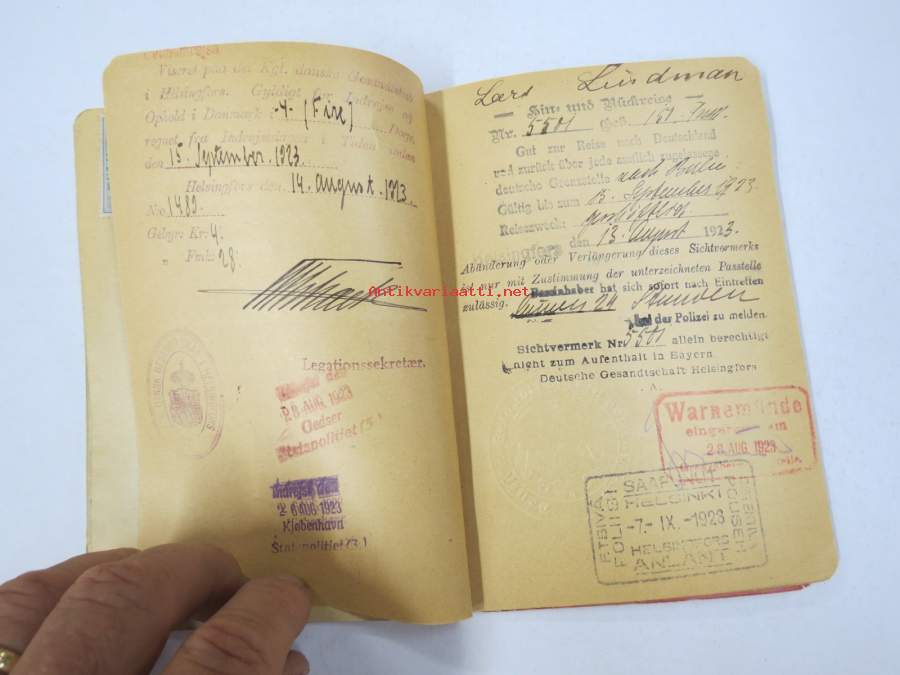 Viseret paa det Kgl. danske Gesandtskab
i Helsingfors. Gyldigt for Indrejse og
Ophold i Danmark i 4 (Fire) Dage,
regnet fra Indrejsedagen i Tiden inden
den 15. September 1923
Helsingfors den 14. August 1923
No 1482.
Gebyr: Kr: 4.
" Fmk: 28.
Legationssekretær.
28 AUG 1923
Gedser
Statspolitiet (3.)
Indrejst den
26 AUG 1923
Kjøbenhavn
Statspolitiet (3.)
Lars Lindman
Hin- und Rückreise
Nr. 5501
Gut zur Reise nach Deutschland
und zurück über jede amtlich zugelassene
deutsche Grenzstelle nach Berlin
Gültig bis zum September 1923.
Reisezweck:
Helsingfors den 13. August 1923.
Abänderung oder Verlängerung dieses Sichtvermerks
ist nur mit Zustimmung der unterzeichneten Passtelle
zulässig. Passinhaber hat sich sofort nach Eintreffen
24 Stunden
bei der Polizei zu melden.
Sichtvermerk Nr. 5501 allein berechtigt
night zum Aufenthalt in Bayern.
Deutsche Gesandtschaft Helsingfors
Warnemünde
28 AUG 1923
ETSIVÄ POLIISI
SAAPUNUT
HELSINKI
-7-IX.-1923
HELSINGFORS
ANLÄNT
Antikvariaatti.net